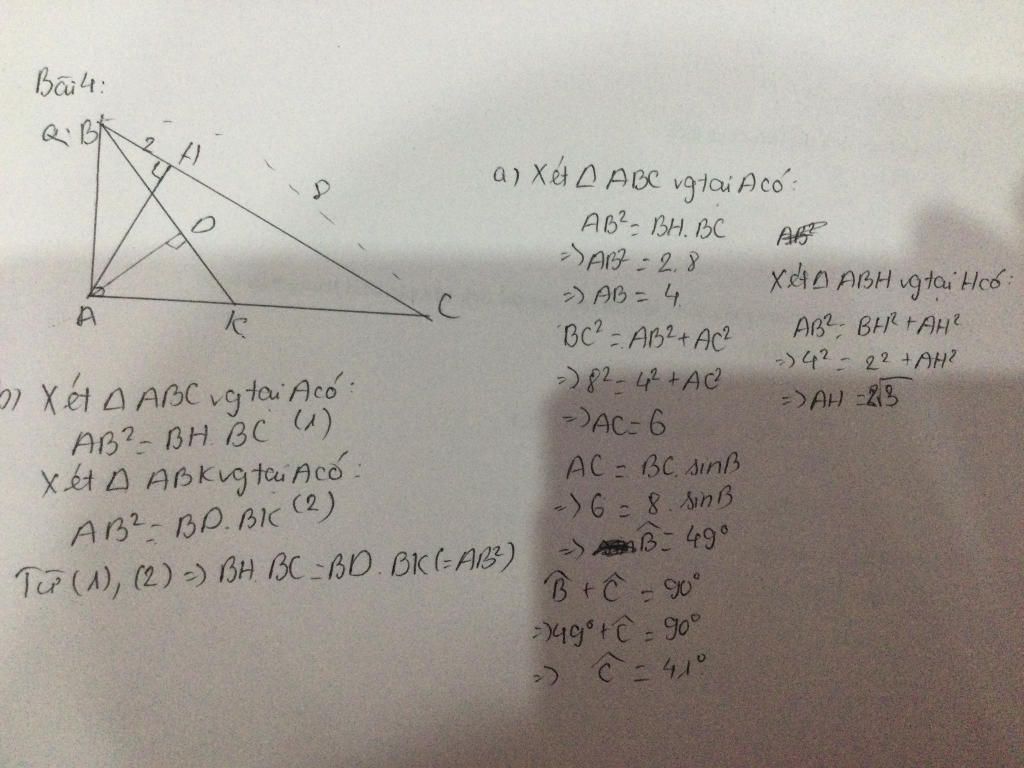 Bài 4:
a. B
2
H
8
D
A
K
C
a) Xét △ ABC vg tại A có:
AB² = BH. BC
=> AB² = 2.8
=> AB = 4
BC² = AB² + AC²
=> 8² = 4² + AC²
=> AC = 6
AC = BC. sinB
=> 6 = 8. sinB
=> B̂ = 49°
B̂ + Ĉ = 90°
=> 49° + Ĉ = 90°
=> Ĉ = 41°
AB²
Xét △ ABH vg tại H có:
AB² = BH² + AH²
=> 4² = 2² + AH²
=> AH = 2√3
b) Xét △ ABC vg tại A có:
AB² = BH. BC (1)
Xét △ ABK vg tại A có:
AB² = BD. BK (2)
Từ (1), (2) => BH. BC = BD. BK (= AB²)